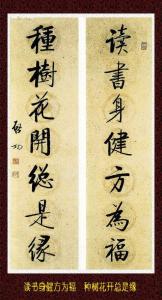 读书身健方为福
種樹花開總是緣
啓功
读书身健方为福　种树花开总是缘